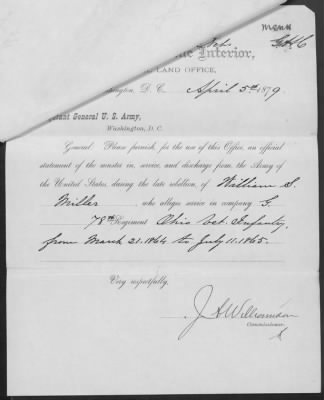 Menn
G.L.C
Interior,
LAND OFFICE,
Washington, D. C. April 5th 1879.
Adjutant General U. S. Army,
Washington, D. C.
General: Please furnish, for the use of this Office, an official
statement of the muster in, service, and discharge from, the Army of
the United States, during the late rebellion, of William S.
Miller who alleges service in company G.
78th Regiment Ohio Vet. Infantry,
from March 21. 1864 to July 11. 1865.
Very respectfully,
J A Williamson
Commissioner.